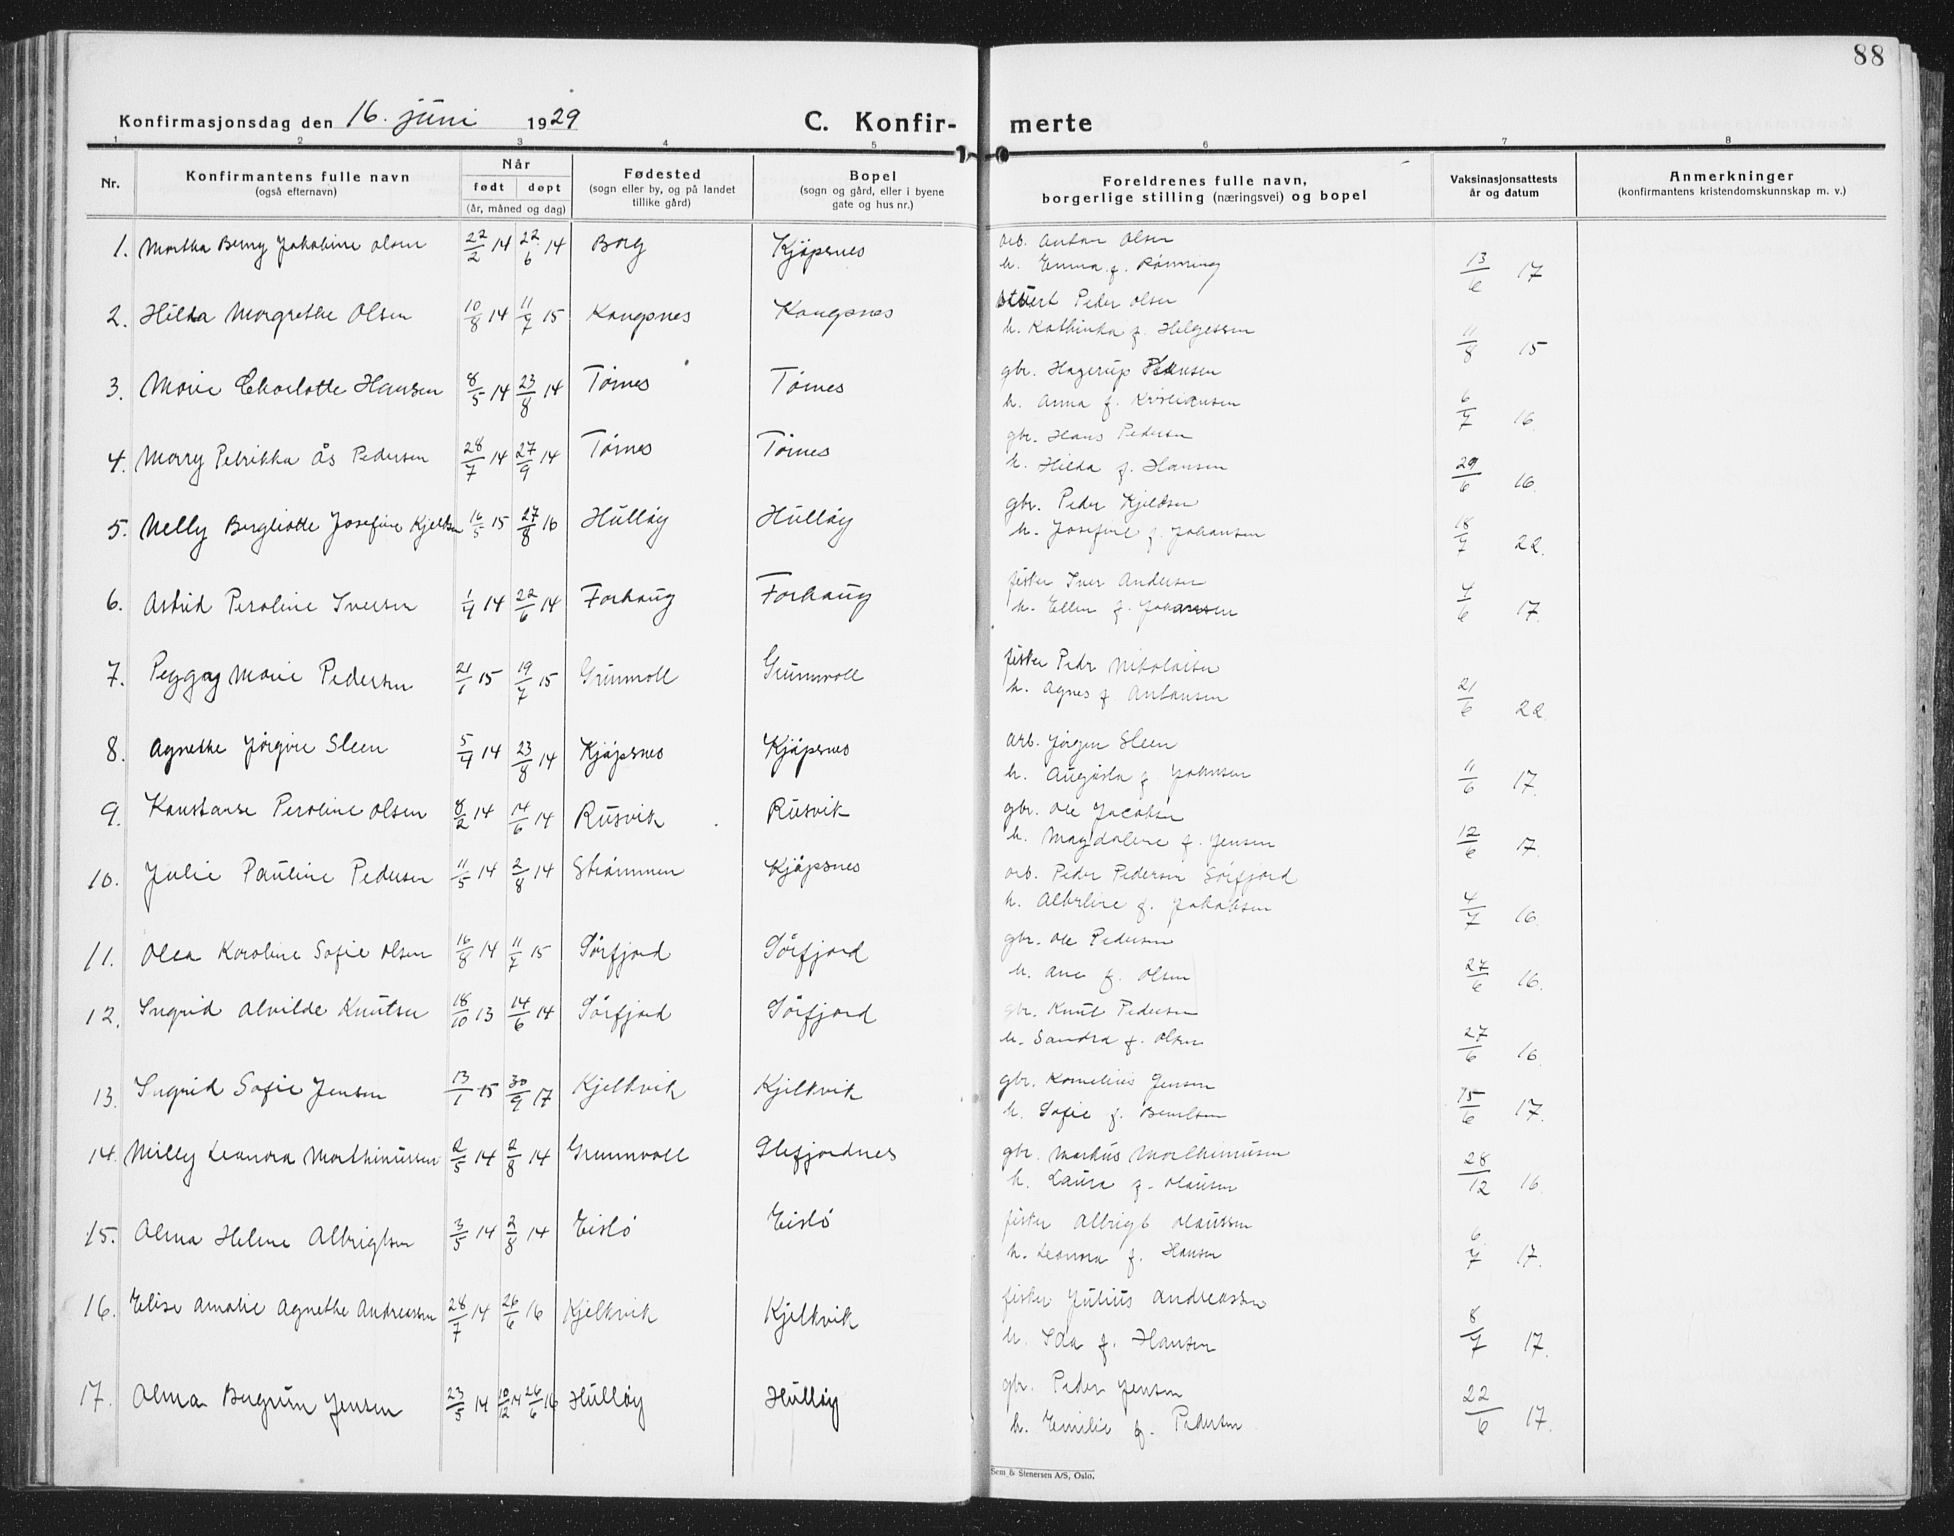 88
Konfirmasjonsdag den 16. juni 1929
C. Konfir- merte
1 2 3 4 5 6 7 8
Nr.
Konfirmantens fulle navn
(også efternavn)
Når
født døpt
(år, måned og dag)
Fødested
(sogn eller by, og på landet
tillike gård)
Bopel
(sogn og gård, eller i byene
gate og hus nr.)
Foreldrenes fulle navn,
borgerlige stilling (næringsvei) og bopel
Vaksinasjonsattests
år og datum
Anmerkninger
(konfirmantens kristendomskunnskap m. v.)
1. Martha Jakobine Olsen 22/2 14 22/6 14 Borg Kjøpsnes
arb. Anton Olsen
h. Emma f. Rønning 13/6 17
2. Hilda Margrethe Olsen 10/8 14 11/7 15 Kongsnes Kongsnes
Peder Olsen
h. Kathinka f. Helgessen 11/8 15
3. Marie Charlotte Hansen 8/5 14 23/8 14 Tørnes Tørnes
gbr. Hagerup
h. Anna f. Kristiansen 6/7 16
4. Morry Petrikka Ås Pedersen 28/7 14 27/9 14 Tørnes Tørnes
gbr. Hans Pedersen
h. Hilda f. Hansen 29/6 16.
5. Nelly Bergliotte Josefine Kjeldsen 16/5 15 27/8 16 Hulløy Hulløy
gbr. Peder Kjeldsen
h. Josefine f. Johansen 18/7 22.
6. Astrid Peroline Iversen 1/4 14 22/6 14 Forhaug Forhaug
fisker Iver Andersen
h. Ellen f. Johansen 4/6 17.
7. Peggy Marie Pedersen 21/1 15 19/7 15 Grunnvoll Grunnvoll
fisker Peder Nikolaisen
h. Agnes f. Antonsen 21/6 22.
8. Agnethe Jørgine Sleen 5/4 14 23/8 14 Kjøpsnes Kjøpsnes
arb. Jørgen Sleen
h. Augusta f. Johnsen 11/6 17.
9. Konstanse Peroline Olsen 8/2 14 14/6 14 Rusvik Rusvik
gbr. Ole Jacobsen
h. Magdalene f. Jensen 12/6 17.
10. Julie Pauline Pedersen 11/5 14 2/8 14 Strømmen Kjøpsnes
arb. Peder Pedersen Sørfjord
h. Albertine f. Jakobsen 4/7 16.
11. Olea Karoline Sofie Olsen 16/8 14 11/7 15 Sørfjord Sørfjord
gbr. Ole Pedersen
h. Ane f. Olsen 27/6 16.
12. Ingrid Alvilde Knutsen 18/10 13 14/6 14 Sørfjord Sørfjord
gbr. Knut Pedersen
h. Sandra f. Olsen 27/6 16.
13. Ingrid Sofie Jensen 13/1 15 30/9 17 Kjelkvik Kjelkvik
gbr. Kornelius Jensen
h. Sofie f. Bentsen 15/6 17.
14. Milly Leonora Marthinussen 2/5 14 2/8 14 Grunnvoll Slefjordnes
gbr. Markus Marthinusen
h. Laura f. Olausen 28/12 16
15. Alma Helene Albrigtsen 3/5 14 2/8 14 Eislø Eislø
fisker Albrigt Olaussen
h. Leonora f. Hansen 6/7 17.
16. Elise Amalie Agnethe Andreassen 28/7 14 26/6 16 Kjelkvik Kjelkvik
fisker Julius Andreassen
h. Ida f. Hansen 8/7 17.
17. Alma Jensen 23/5 14 10/12 14 26/6 16 Hulløy Hulløy
gbr. Peder Jensen
h. Emilie f. Pedersen 22/6 17.
Sem & Stenersen A/S, Oslo.